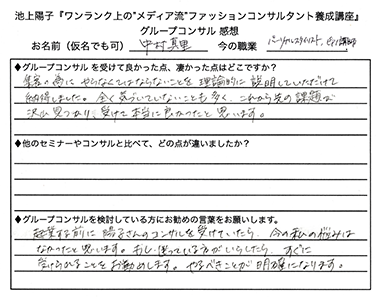 池上陽子『ワンランク上の"メディア流"ファッションコンサルタント養成講座』
グループコンサル 感想
お名前（仮名でも可） 中村真里 今の職業 パーソナルスタイリスト、
◆グループコンサル を受けて良かった点、凄かった点はどこですか？
集客の為に やらなくてはならないことを 理論的に 説明していただけて
納得しました。全く気づいていないことも多く、これから先の課題が
沢山見つかり、受けて本当に良かったと思います。
◆他のセミナーやコンサルと比べて、どの点が違いましたか？
◆グループコンサルを検討している方にお勧めの言葉をお願いします。
起業する前に 陽子さんのコンサルを受けていたら、今の私の悩みは
なかったと思います。もし、迷っている方がいらしたら、すぐに
受けられることをお勧めします。やるべきことが明確になります。